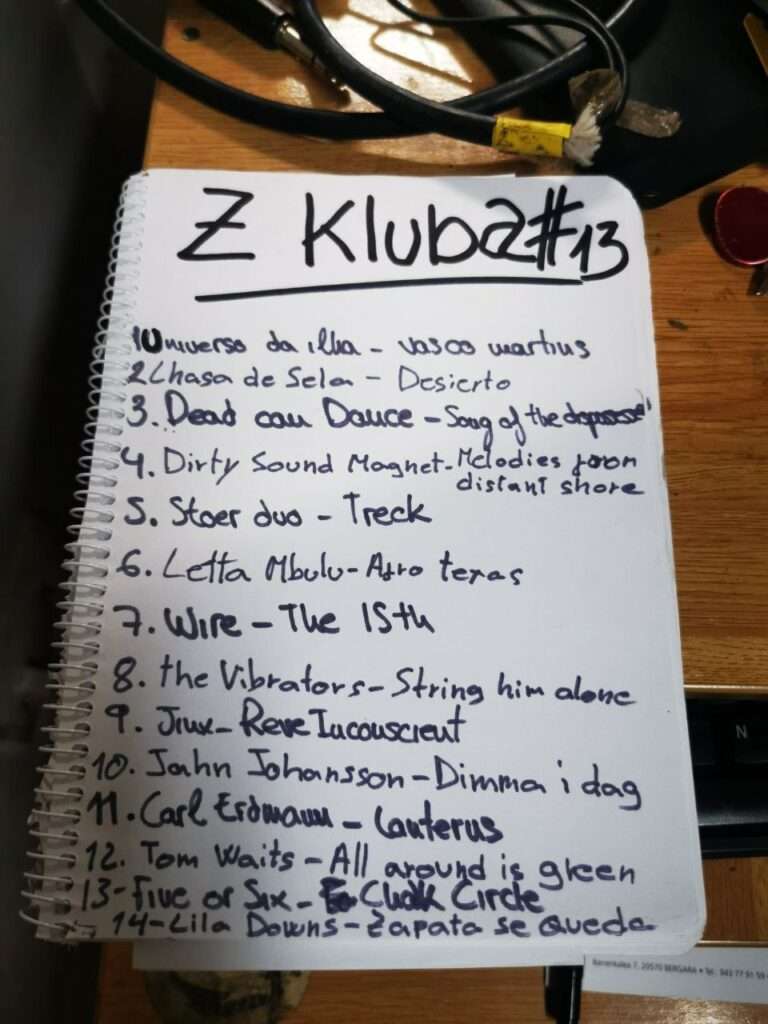 Z Kluba #13
1 Universo da ilha - vasco martius
2 Chasa de Sela - Desierto
3. Dead can Dance - Song of the
4. Dirty Sound Magnet - Melodies from
distant shore
5. Stoer duo - Treck
6. Letta Mbulu - Afro texas
7. Wire - The 15th
8. the Vibrators - String him alone
9. Jiux - Reve Inconscient
10. Jahn Johansson - Dimma i dag
11. Carl Erdmann - Lanterns
12. Tom Waits - All around is green
13 - Five or Six - Chalk Circle
14 - Lila Downs - Zapata se queda
N
Barrenkalea 7, 20570 BERGARA • Tel.: 943 77 91 59